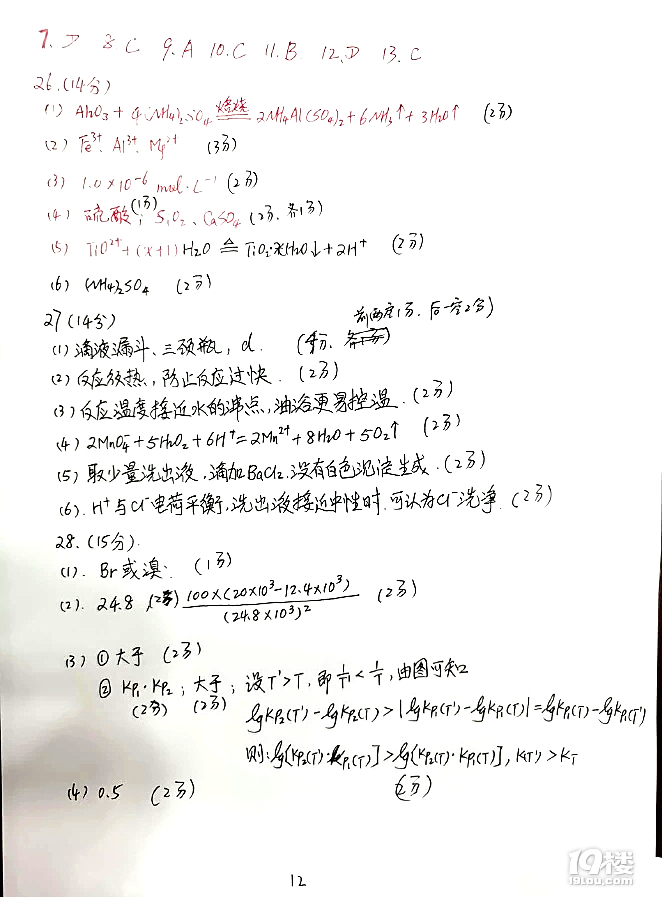 7. D 8. C 9. A 10. C 11. B 12. D 13. C
26.(14分)
(1) Al₂O₃ + 4(NH₄)₂SO₄ 焙烧 2NH₄Al(SO₄)₂ + 6NH₃↑ + 3H₂O↑ (2分)
(2) Fe³⁺、Al³⁺、Mg²⁺ (3分)
(3) 1.0×10⁻⁶ mol·L⁻¹ (2分)
(4) 硫酸(1分); SiO₂、CaSO₄ (2分、各1分)
(5) TiO²⁺+(x+1)H₂O ≙ TiO₂·xH₂O↓+2H⁺ (2分)
(6) (NH₄)₂SO₄ (2分)
27(14分) 前两空1分、后一空2分)
(1) 滴液漏斗、三颈瓶, d.
(2) 反应放热,防止反应过快. (2分)
(3) 反应温度接近水的沸点,油浴更易控温. (2分)
(4) 2MnO₄⁻+5H₂O₂+6H⁺=2Mn²⁺+8H₂O+5O₂↑ (2分)
(5) 取少量洗出液,滴加BaCl₂,没有白色沉淀生成. (2分)
(6). H⁺与Cl⁻电荷平衡,洗出液接近中性时,可认为Cl⁻洗净. (2分)
28.(15分).
(1). Br或溴. (1分)
(2). 24.8 (2分) 100×(20×10³-12.4×10³) (2分)
(24.8×10³)²
(3) ①大于 (2分)
② Kp₁·Kp₂; 大于; 设T'>T, 即 1/T' < 1/T, 由图可知
(2分) (2分)
lgKp₂(T')-lgKp₂(T)>|lgKp₁(T')-lgKp₁(T)|=lgKp₁(T)-lgKp₁(T')
则:lg[Kp₂(T')·Kp₁(T')]>lg[Kp₂(T)·Kp₁(T)], K(T')>K(T)
(2分)
(4) 0.5 (2分)
12
19楼
19lou.com